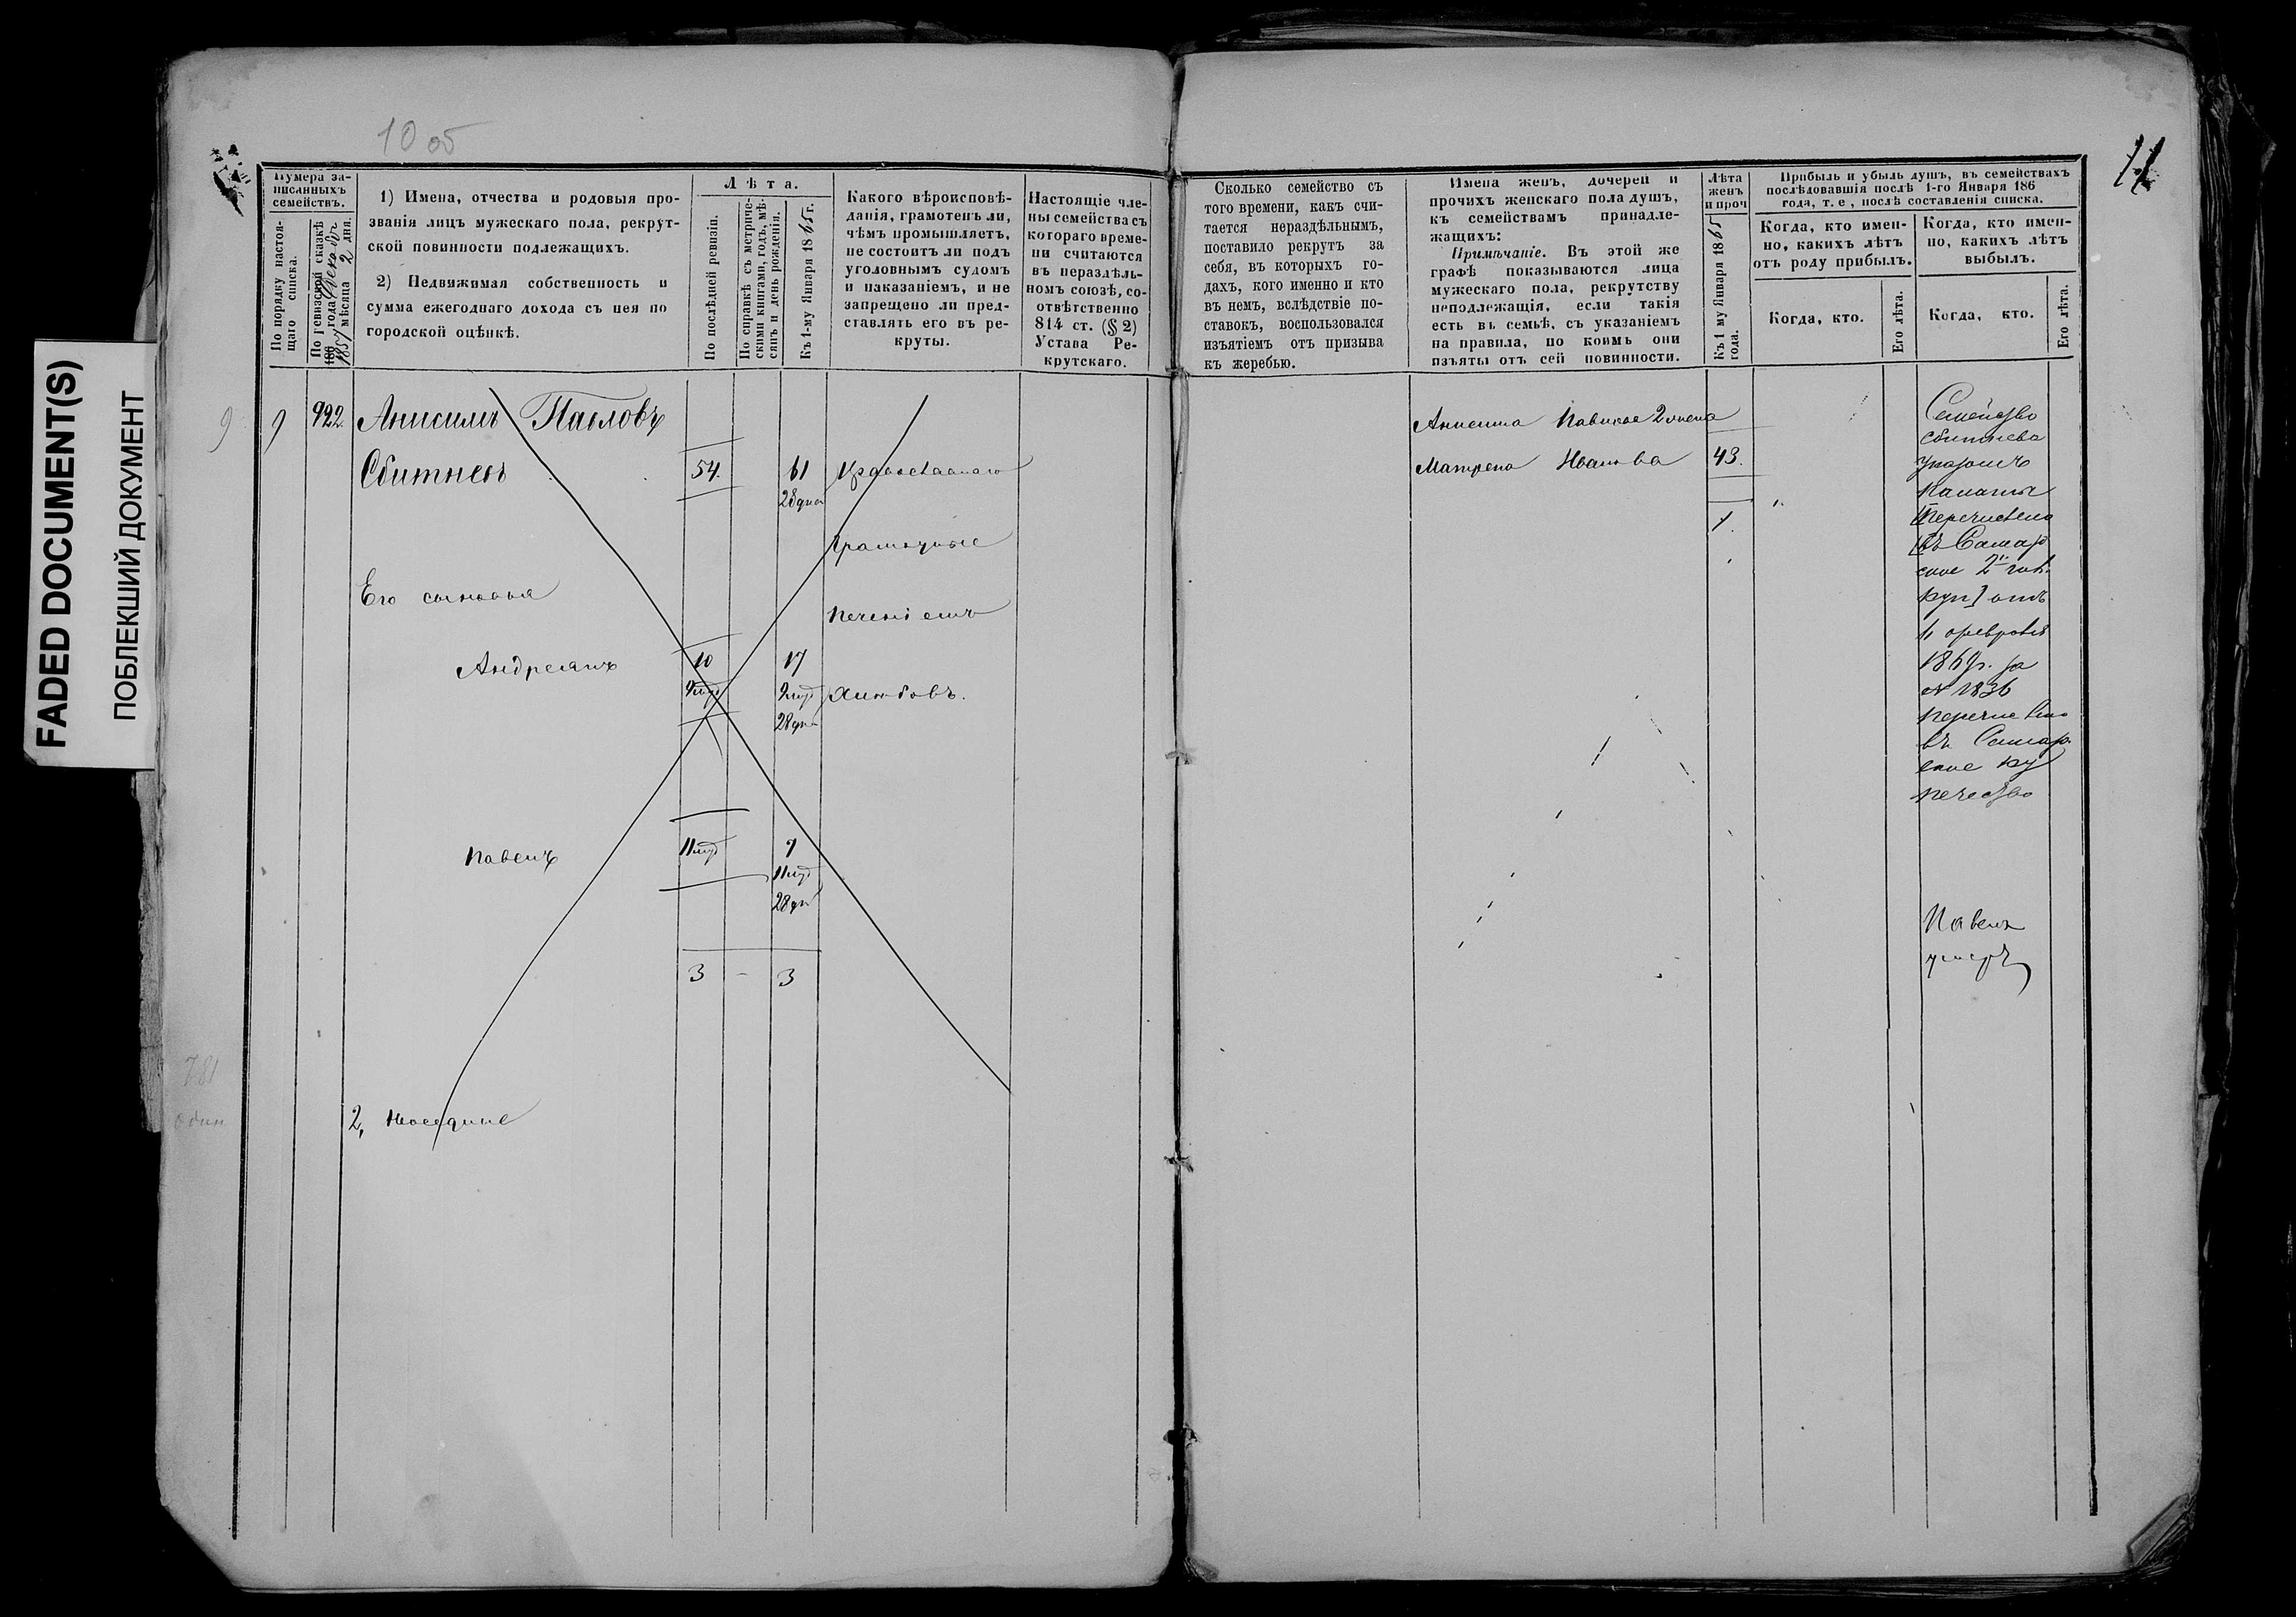 FADED DOCUMENT(S)
ПОБЛЕКШИЙ ДОКУМЕНТ
10 об
Нумера за-
писанныхъ
семействъ.
По порядку настоя-
щаго списка.
По ревизской сказкѣ
186 1857 года Декабр
мѣсяца 2 дня.
1) Имена, отчества и родовыя про-
званія лицъ мужескаго пола, рекрут-
ской повинности подлежащихъ.
2) Недвижимая собственность и
сумма ежегоднаго дохода съ нея по
городской оцѣнкѣ.
Лѣта.
По послѣдней ревизіи.
По справкѣ съ метриче-
скими книгами, годъ, мѣ-
сяцъ и день рожденія.
Къ 1-му Января 1865 г.
Какого вѣроисповѣ-
данія, грамотенъ ли,
чѣмъ промышляетъ,
не состоитъ ли подъ
уголовнымъ судомъ
и наказаніемъ, и не
запрещено ли пред-
ставлять его въ ре-
круты.
Настоящіе чле-
ны семейства съ
котораго време-
ни считаются
въ нераздѣль-
номъ союзѣ, со-
отвѣтственно
814 ст. (§ 2)
Устава Ре-
крутскаго.
9 9 922 Анисимъ Павловъ
Сбитневъ 54. 61 Православнаго
28 дна
Грамотные
Его сыновья
печеніемъ
Андреянъ 10 17
9 мц 9 мц хлѣбовъ.
28 дна
Павелъ 11 мц 7
11 мц
28 дн
3 - 3
781
один
2, Неседние
11
Сколько семейство съ
того времени, какъ счи-
тается нераздѣльнымъ,
поставило рекрутъ за
себя, въ которыхъ го-
дахъ, кого именно и кто
въ немъ, вслѣдствіе по-
ставокъ, воспользовался
изъятіемъ отъ призыва
къ жеребью.
Имена женъ, дочерей и
прочихъ женскаго пола душъ,
къ семействамъ принадле-
жащихъ:
Примѣчаніе. Въ этой же
графѣ показываются лица
мужескаго пола, рекрутству
неподлежащія, если такія
есть въ семьѣ, съ указаніемъ
на правила, по коимъ они
изъяты отъ сей повинности.
Лѣта
женъ
и проч
Къ 1 му Января 1865
года.
Прибыль и убыль душъ, въ семействахъ
послѣдовавшія послѣ 1-го Января 186
года, т. е, послѣ составленія списка.
Когда, кто имен-
но, какихъ лѣтъ
отъ роду прибылъ.
Когда, кто.
Его лѣта.
Когда, кто имен-
но, какихъ лѣтъ
выбылъ.
Когда, кто.
Его лѣта.
Анисима Павлова 2 жена
Матрена Иванова 43.
1.
Семейство
Сбитнева
указомъ
Палаты
перечислено
въ Самар
ское 2й гил.
куп] отъ
11 февраля
1869г. за
№ 1836
перечислено
въ Самар-
ское ку
печество
Павелъ
умеръ